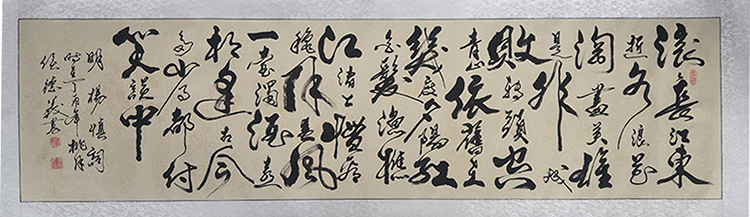 滚滚長江東
逝水浪花
淘盡英雄
是非成
敗轉頭空
青山依舊在
幾度夕陽紅
白髮漁樵
江渚上慣看
秋月春風
一壺濁酒喜
相逢古今
多少事都付
笑談中
明楊慎詞
丁酉年桃月
德書